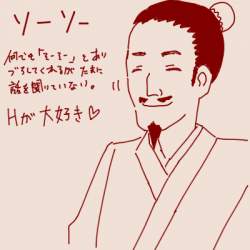 ソーソー
何でも「そーそー」とあい
づちしてくれるが たまに
話を聞いていない。
Hが大好き♡